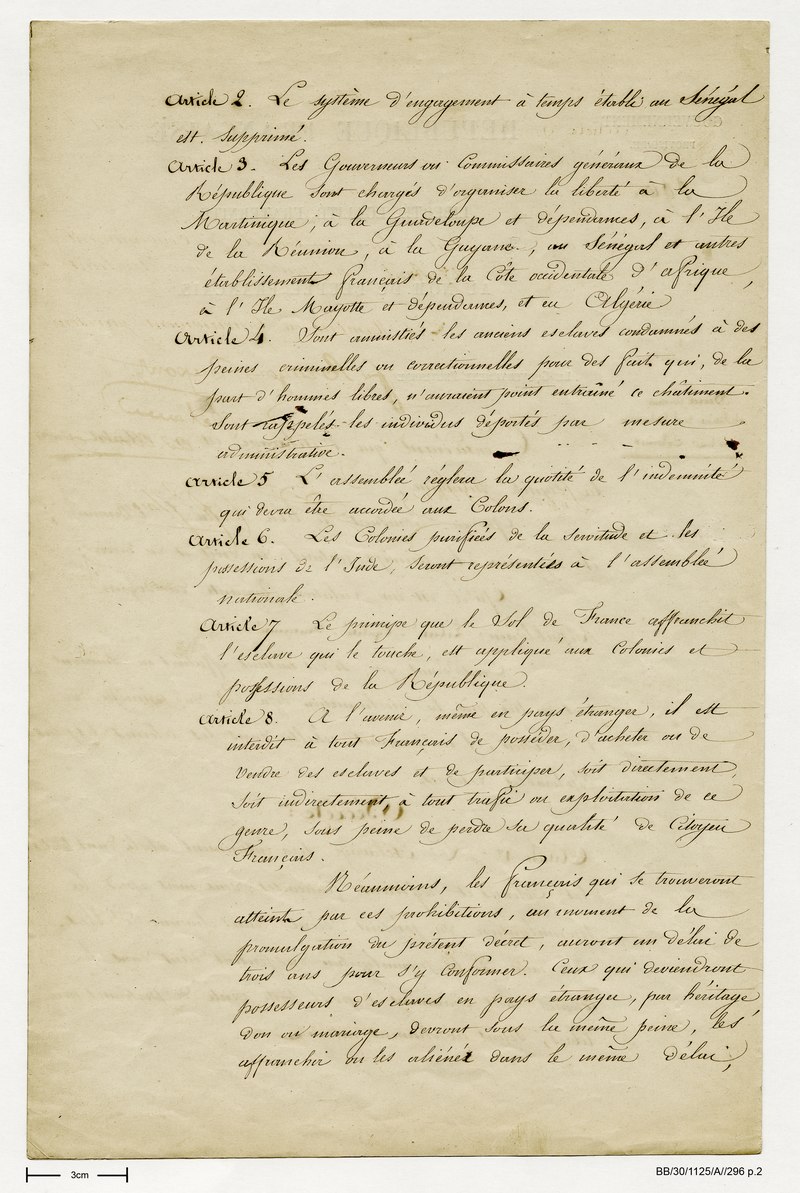 Article 2. Le système d'engagement à temps établi au Sénégal
est supprimé.
Article 3. Les Gouverneurs ou Commissaires généraux de la
République sont chargés d'organiser la liberté à la
Martinique, à la Guadeloupe et dépendances, à l'Ile
de la Réunion, à la Guyane, au Sénégal et autres
établissements français de la Côte occidentale d'afrique,
à l'Ile Mayotte et dépendances, et en Algérie
Article 4. Sont amnistiés les anciens esclaves condamnés à des
peines criminelles ou correctionnelles pour des faits qui, de la
part d'hommes libres, n'auraient point entraîné ce châtiment.
Sont rappelés les individus déportés par mesure
administrative.
Article 5 L'assemblée réglera la quotité de l'indemnité
qui devra être accordée aux Colons.
Article 6. Les Colonies purifiées de la servitude et les
possessions de l'Inde, seront représentées à l'assemblée
nationale.
Article 7 Le principe que le Sol de France affranchit
l'esclave qui le touche, est appliqué aux Colonies et
possessions de la République.
Article 8. A l'avenir, même en pays étranger, il est
interdit à tout Français de posséder, d'acheter ou de
vendre des esclaves et de participer, soit directement,
soit indirectement, à tout trafic ou exploitation de ce
genre, sous peine de perdre sa qualité de Citoyen
Français.
Néanmoins, les français qui se trouveront
atteints par ces prohibitions, au moment de la
promulgation du présent décret, auront un délai de
trois ans pour s'y conformer. Ceux qui deviendront
possesseurs d'esclaves en pays étranger, par héritage
don ou mariage, devront sous la même peine, les
affranchir ou les aliéner dans le même délai,
3cm
BB/30/1125/A//296 p.2